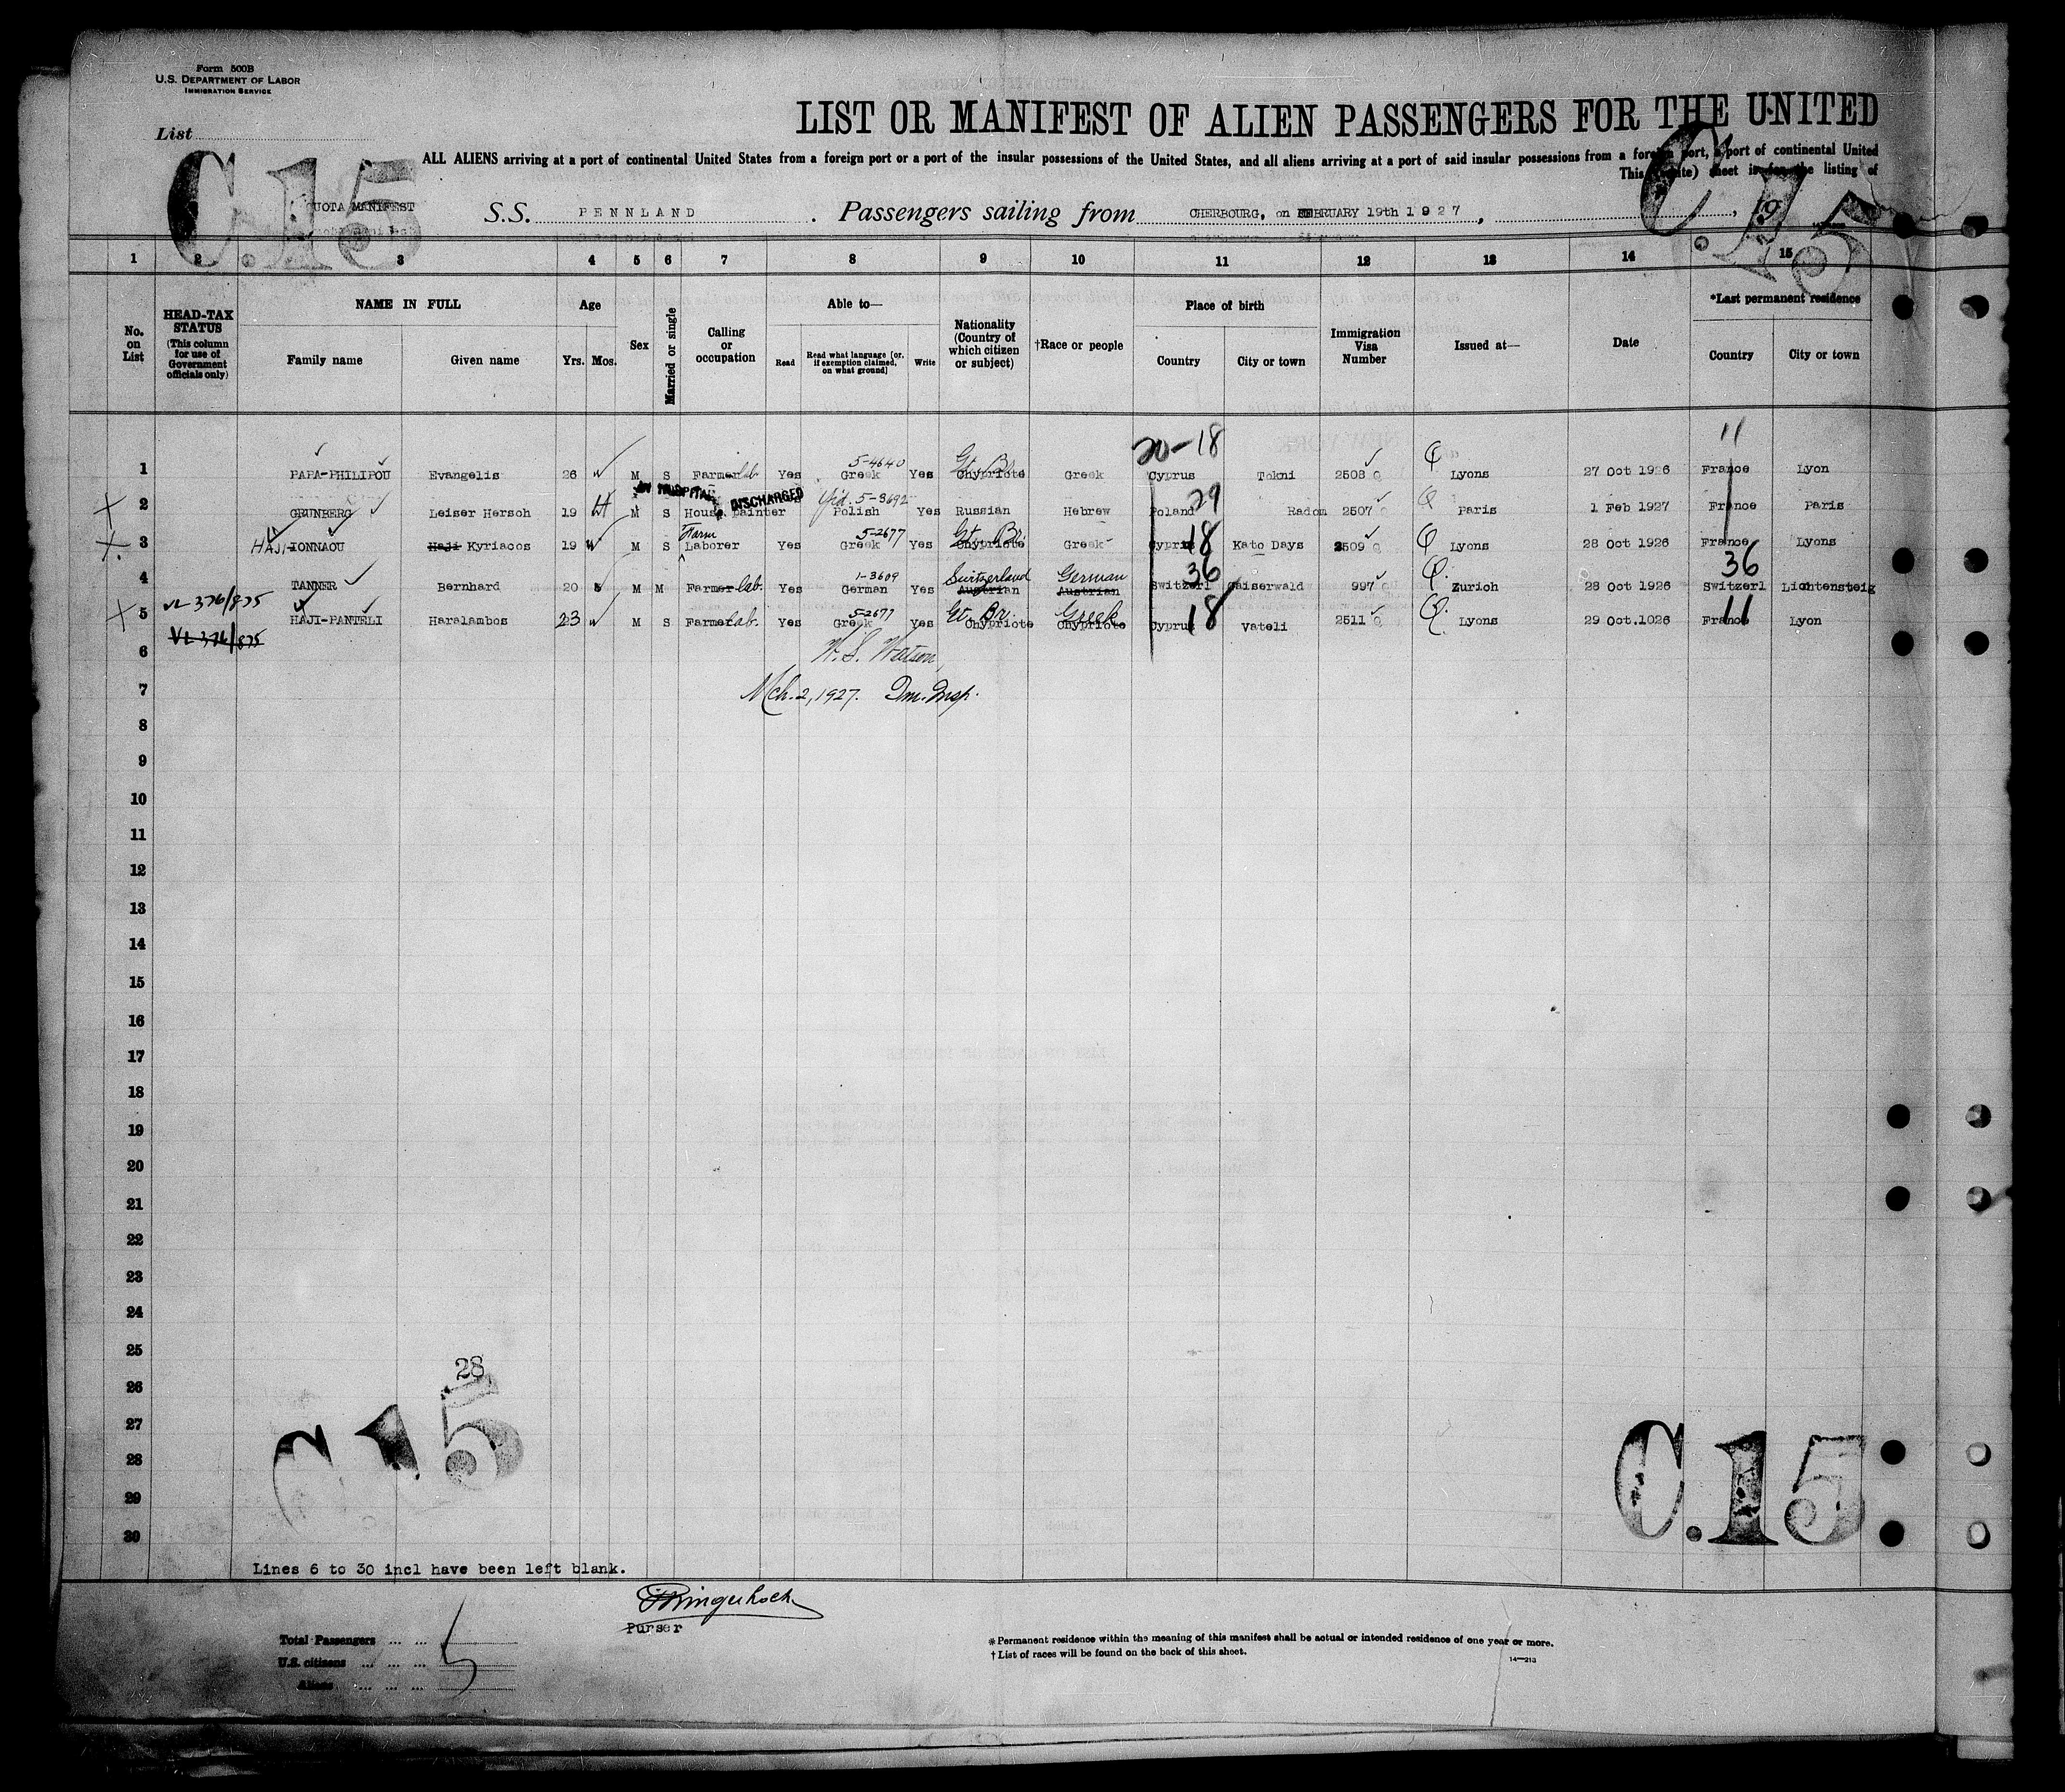 Form 500B
U.S. DEPARTMENT OF LABOR
IMMIGRATION SERVICE
List
C.15
LIST OR MANIFEST OF ALIEN PASSENGERS FOR THE UNITED
ALL ALIENS arriving at a port of continental United States from a foreign port or a port of the insular possessions of the United States, and all aliens arriving at a port of said insular possessions from a foreign port, a port of continental United
This (white) sheet is for the listing of
C.15
QUOTA MANIFEST
S.S. PENNLAND. Passengers sailing from CHERBOURG, on FEBRUARY 19th 1927, , 19
1 2 3 4 5 6 7 8 9 10 11 12 13 14 15
No. on List
HEAD-TAX STATUS (This column for use of Government officials only)
NAME IN FULL
Family name Given name
Age
Yrs. Mos.
Sex
Married or single
Calling or occupation
Able to—
Read Read what language [or, if exemption claimed, on what ground] Write
Nationality (Country of which citizen or subject)
†Race or people
Place of birth
Country City or town
Immigration Visa Number
Issued at—
Date
*Last permanent residence
Country City or town
20-18 11
5-4640 Gt. Br.
1 PAPA-PHILIPOU Evangelis 26 M S Farmer lab Yes Greek Yes Chypriote Greek Cyprus Tokni 2508 Q Lyons 27 Oct 1926 France Lyon
IN HOSPITAL DISCHARGED Yid. 5-3692 29
2 GRUNBERG Leiser Hersch 19 M S House painter Polish Yes Russian Hebrew Poland Radom 2507 Q Paris 1 Feb 1927 France Paris
Farm 5-2677 Gt. Br. 18
3 HAJI-IONNAOU Haji Kyriacos 19 M S Laborer Yes Greek Yes Chypriote Greek Cyprus Kato Days 2509 Q Lyons 28 Oct 1926 France Lyons
1-3609 Switzerland German 36 36
4 TANNER Bernhard 20 M M Farmer lab. Yes German Yes Austrian Austrian Switzerl Gaiserwald 997 Q Zurich 28 Oct 1926 Switzerl Lichtensteig
VL 376/875 5-2677 Gt. Br. Greek 18 11
5 HAJI-PANTELI Haralambos 23 M S Farmer lab. Yes Greek Yes Chypriote Chypriote Cyprus Vateli 2511 Q Lyons 29 Oct.1026 France Lyon
VL 376/875
6 W. S. Watson
7 Mch. 2, 1927. Im. Insp.
8
9
10
11
12
13
14
15
16
17
18
19
20
21
22
23
24
25
26
27
28
29
30
28
C 15
C.15
Lines 6 to 30 incl have been left blank.
Purser
Total Passengers ... ...
U.S. citizens ... ... ...
Aliens ... ... ...
5
* Permanent residence within the meaning of this manifest shall be actual or intended residence of one year or more.
† List of races will be found on the back of this sheet.
14—213